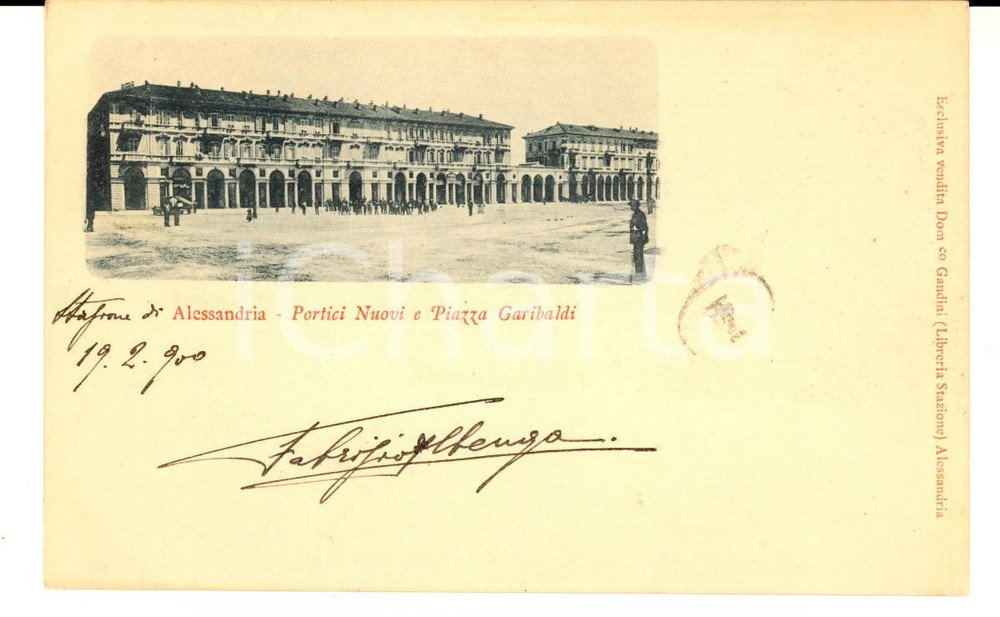 Stazione di Alessandria - Portici Nuovi e Piazza Garibaldi
19. 2. 900
Fabrizio Albenga
Esclusiva vendita Dom co Gandini (Libreria Stazione) Alessandria
iCharta